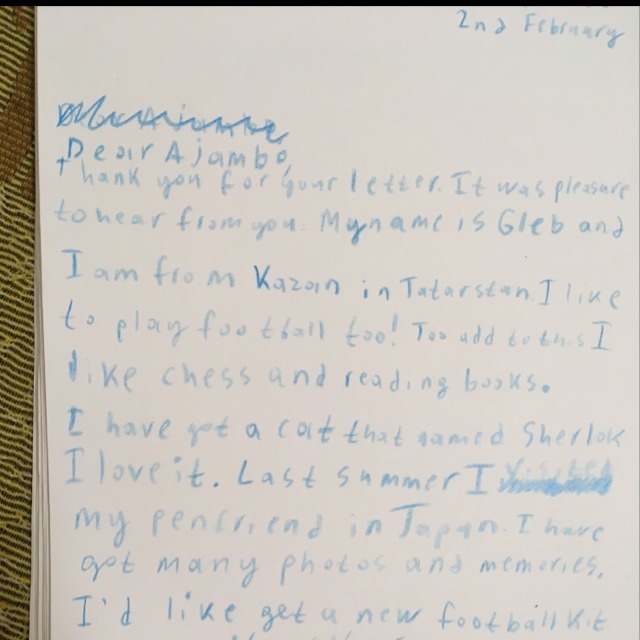 2nd February
Dear Ajambo,
thank you for your letter. It was pleasure
to hear from you. My name is Gleb and
I am from Kazan in Tatarstan. I like
to play football too! Too add to this I
like chess and reading books.
I have got a cat that named Sherlok
I love it. Last summer I visited
my penfriend in Japan. I have
got many photos and memories.
I'd like get a new football kit